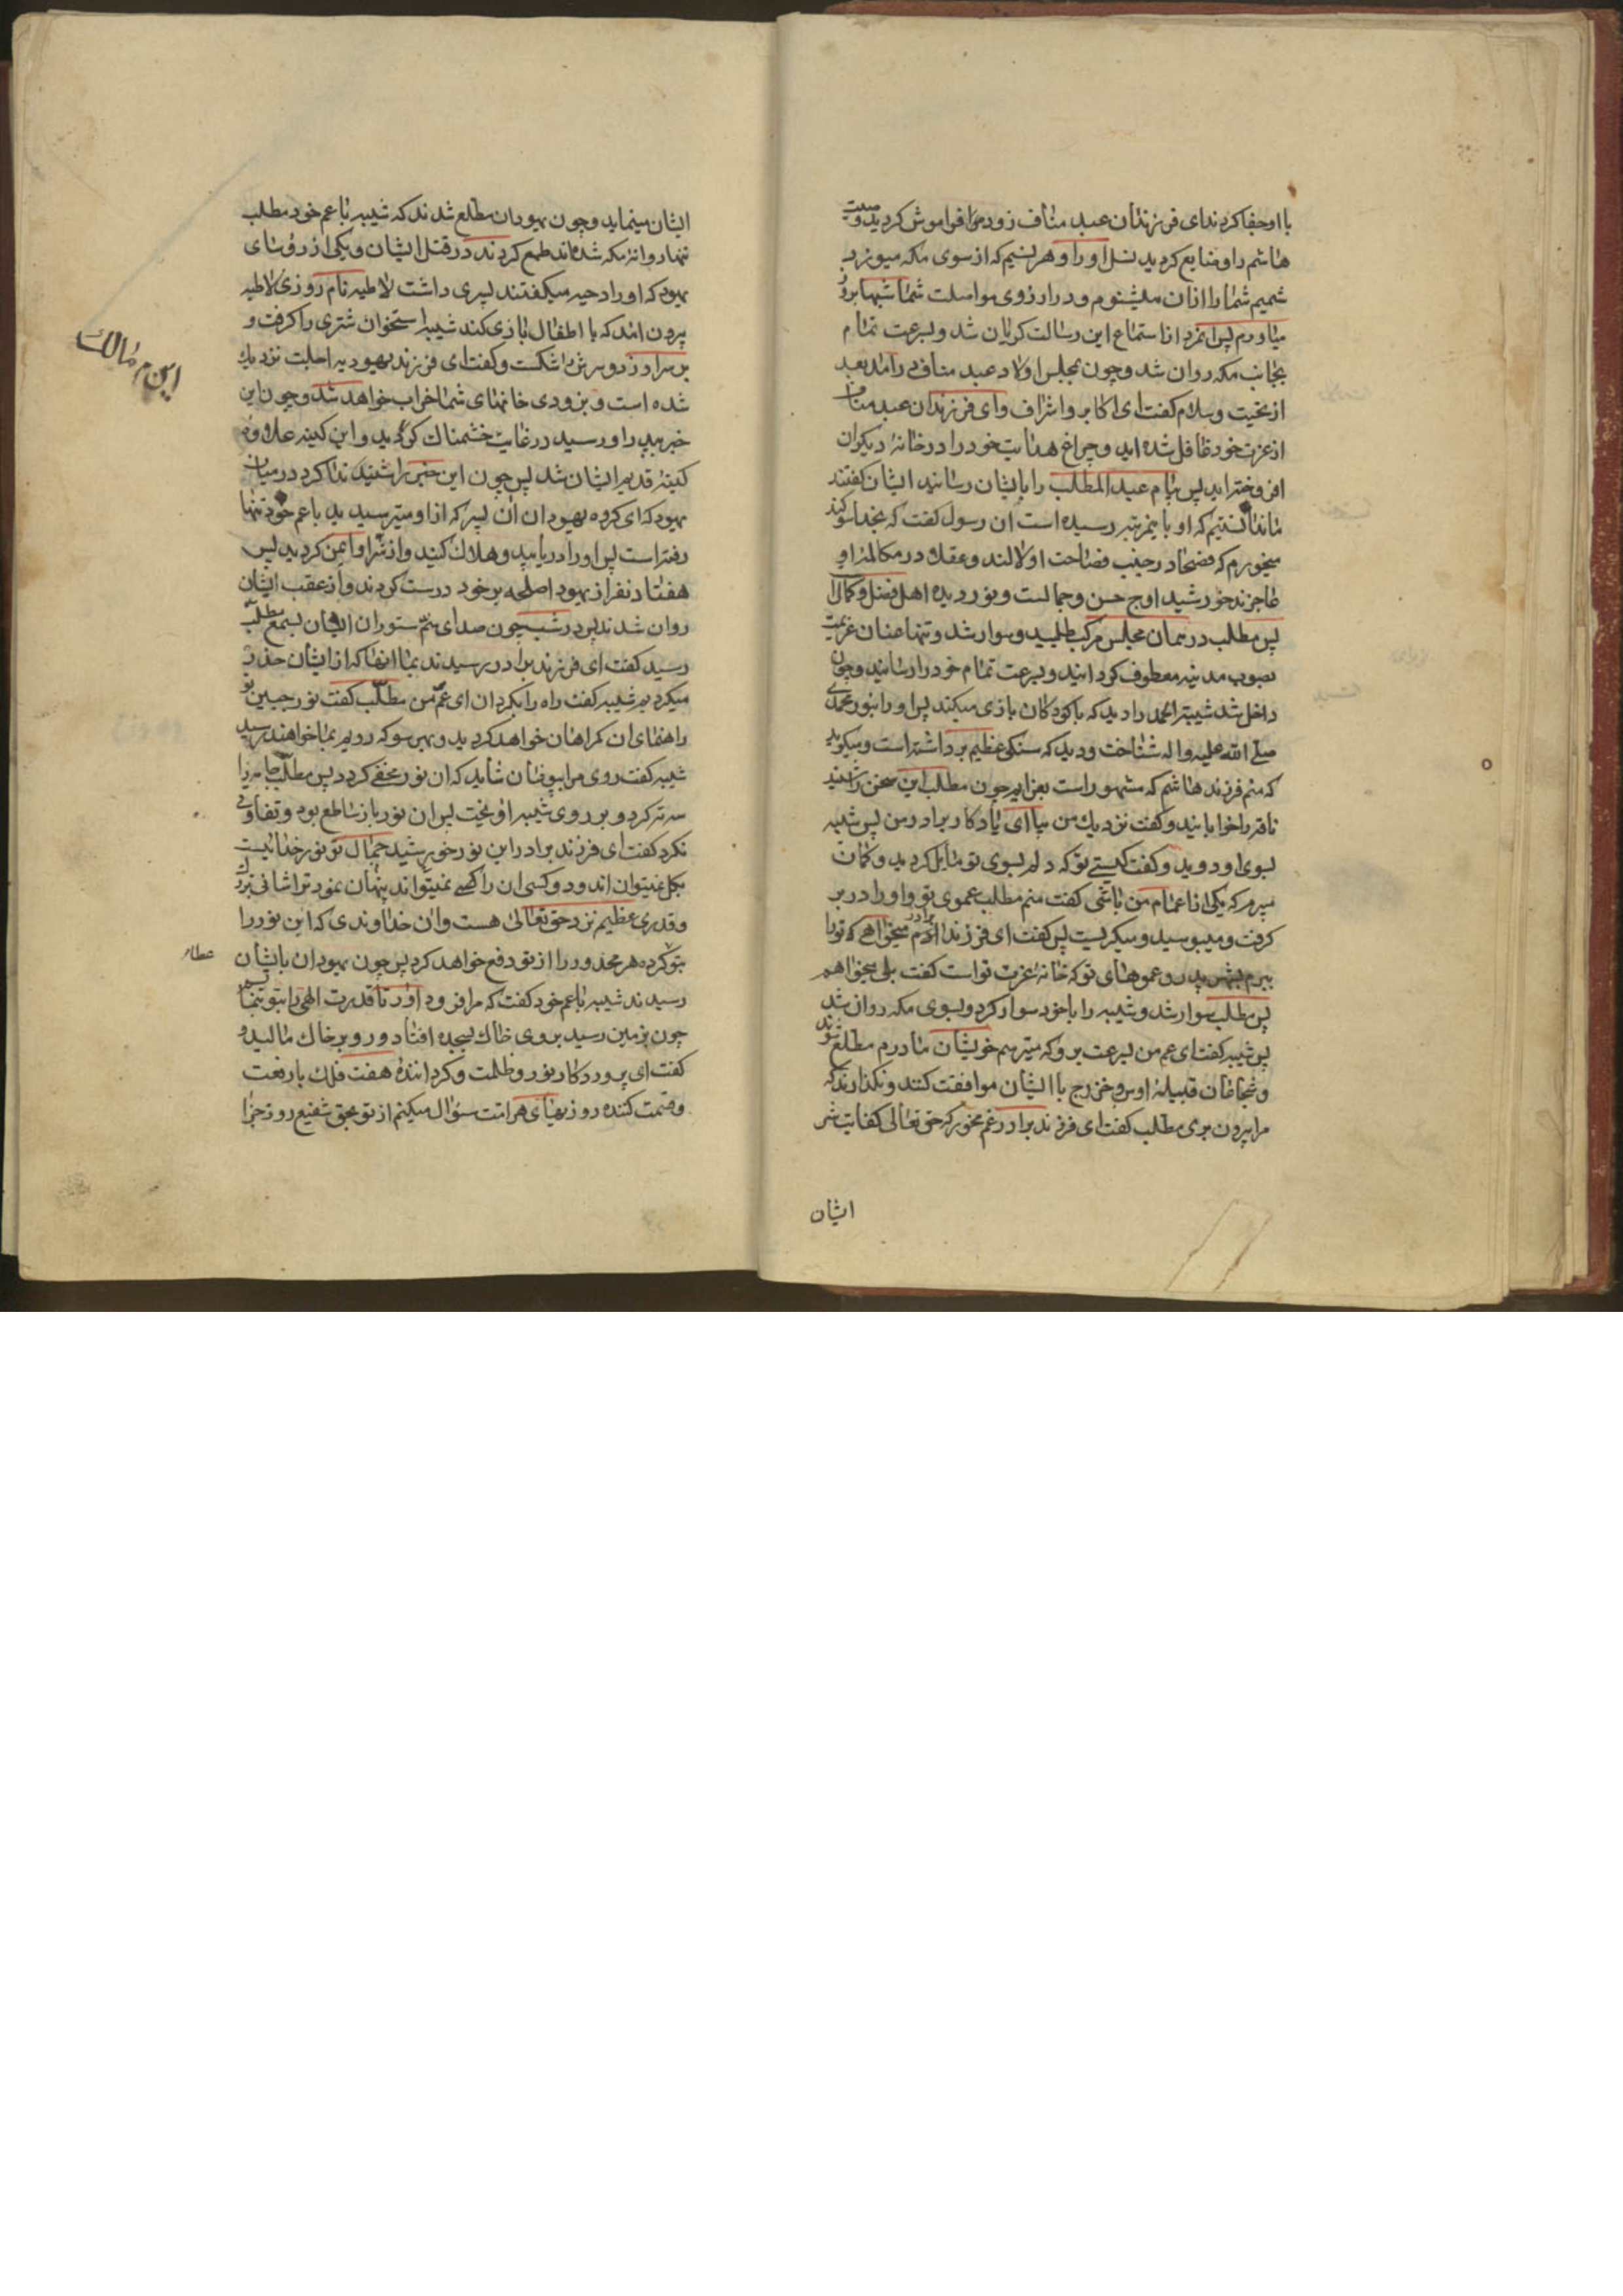 با او جفا کردند ای فرزندان عبد مناف زود مرا فراموش کردید وصیت
هاشم را و ضایع کردید نسل او را و هر نسیم که از سوی مکه میوزید
شمیم شما را از ان میشنوم و در ارزوی مواصلت شما شبها بروز
میاورم پس انمرد از استماع این رسالت کریان شد و بسرعت تمام
بجانب مکه روان شد و چون بمجلس اولاد عبد مناف درامد بعد
از تحیت و سلام کفت ای اکابر و اشراف و ای فرزندان عبد مناف
از عزت خود غافل شده اید و چراغ هدایت خود را در خانهٔ دیکران
افروخته اید پس پیام عبد المطلب را بایشان رسانید ایشان کفتند
ما ندانستیم که او باینمرتبه رسیده است ان رسول کفت که بخدا سوکند
میخورم که فصحا در جنب فصاحت او لالند و عقلا در مکالمهٔ او
عاجزند خورشید اوج حسن و جمالست و نور دیدهٔ اهل فضل و کمال
پس مطلب در همان مجلس مرکب طلبید و سوار شد و تنها عنان عزیمت
بصوب مدینه معطوف کردانید و بسرعت تمام خود را رسانید و چون
داخل شد شیبة الحمد را دید که با کودکان بازی میکند پس او را بنور محمدی
صلی الله علیه و اله شناخت و دید که سنکی عظیم برداشته است و میکوید
که منم فرزند هاشم که مشهور است بعزایم چون مطلب این سخن را شنید
ناقه را خوابانید و کفت نزدیک من بیا ای یادکار برادر من پس شیبه
بسوی او دوید و کفت کیستی تو که دلم بسوی تو مایل کردید و کمان
میبرم که یکی از اعمام من باشی کفت منم مطلب عموی تو و او را در بر
کرفت و میبوسید و میکریست پس کفت ای فرزند برادرم میخواهی که تو را
ببرم بشهر پدر و عموهای تو که خانهٔ عزت تو است کفت بلی میخواهم
پس مطلب سوار شد و شیبه را با خود سوار کرد و بسوی مکه روان شد
پس شیبه کفت ای عم من بسرعت برو که میترسم خویشان مادرم مطلع شوند
و شجاعان قبیلهٔ اوس و خزرج با ایشان موافقت کنند و نکذارند که
مرا بیرون بری مطلب کفت ای فرزند برادر غم مخور که حق تعالی کفایت شر
ایشان
ایشان مینماید و چون یهودان مطلع شدند که شیبه با عم خود مطلب
تنها روانهٔ مکه شده اند طمع کردند در قتل ایشان و یکی از رؤسای
یهود که او را دحیه میکفتند پسری داشت لاطیه نام روزی لاطیه
بیرون امد که با اطفال بازی کند شیبه استخوان شتری را کرفت و
بر سر او زد و سرش را شکست و کفت ای فرزند یهودیه اجلت نزدیک
شده است و بزودی خانهای شما خراب خواهد شد و چون این
خبر بپدر او رسید در غایت خشمناک کردید و این کینه علاوهٔ
کینهٔ قدیم ایشان شد پس چون این خبر را شنید ندا کرد در میان
یهود که ای کروه یهودان ان پسر که از او میترسیدید با عم خود تنها
رفته است پس او را دریابید و هلاک کنید و از شر او ایمن کردید پس
هفتاد نفر از یهود اصلحه بر خود درست کردند و از عقب ایشان
روان شدند پس در شب چون صدای سم ستوران ایشان بسمع مطلب
رسید کفت ای فرزند برادر رسیدند بما انها که از ایشان حذر
میکردیم شیبه کفت راه را بکردان ای عم من مطلب کفت نور جبین تو
راهنمای ان کمراهان خواهد کردید و بهر سو که رویم بما خواهند رسید
شیبه کفت روی مرا بپوشان شاید که ان نور مخفی کردد پس مطلب جامه را
سه ته کرد و بر روی شیبه اویخت پس ان نور باز ساطع بود و تفاوتی
نکرد کفت ای فرزند برادر این نور خورشید جمال تو نور خدائیست
بکل نمیتوان اندود و کسی ان را نمیتواند پنهان نمود ترا شانی بزرک
و قدری عظیم نزد حق تعالی هست و ان خداوندی که این نور را
بتو کرده هر محذور را از تو دفع خواهد کرد پس چون یهودان بایشان
رسیدند شیبه با عم خود کفت که مرا فرود اور تا قدرت الهی را بتو بنمایم
چون بزمین رسید بروی خاک بسجده افتاد و رو بر خاک مالید و
کفت ای پروردکار نور و ظلمت و کردانندهٔ هفت فلک با رفعت
و قسمت کننده روزیهای هر امت سؤال میکنم از تو بحق شفیع روز جزا
عطا